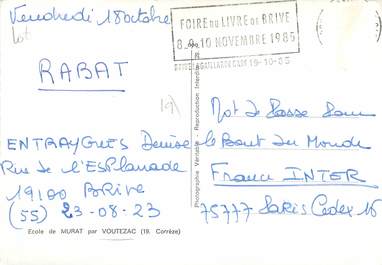 Vendredi 18 octobre
lot
RABAT
19)
ENTRAYGUES Denise
Rue de l'ESPlanade
19100 BRIVE
(55) 23-08-23
Ecole de MURAT par VOUTEZAC (19. Corrèze)
FOIRE DU LIVRE DE BRIVE
8. 10 NOVEMBRE 1985
19-10-85
Photographie Véritable - Reproduction Interdite
Mot de Passe Pour
le Bout du Monde
France INTER
75777 Paris Cedex 16